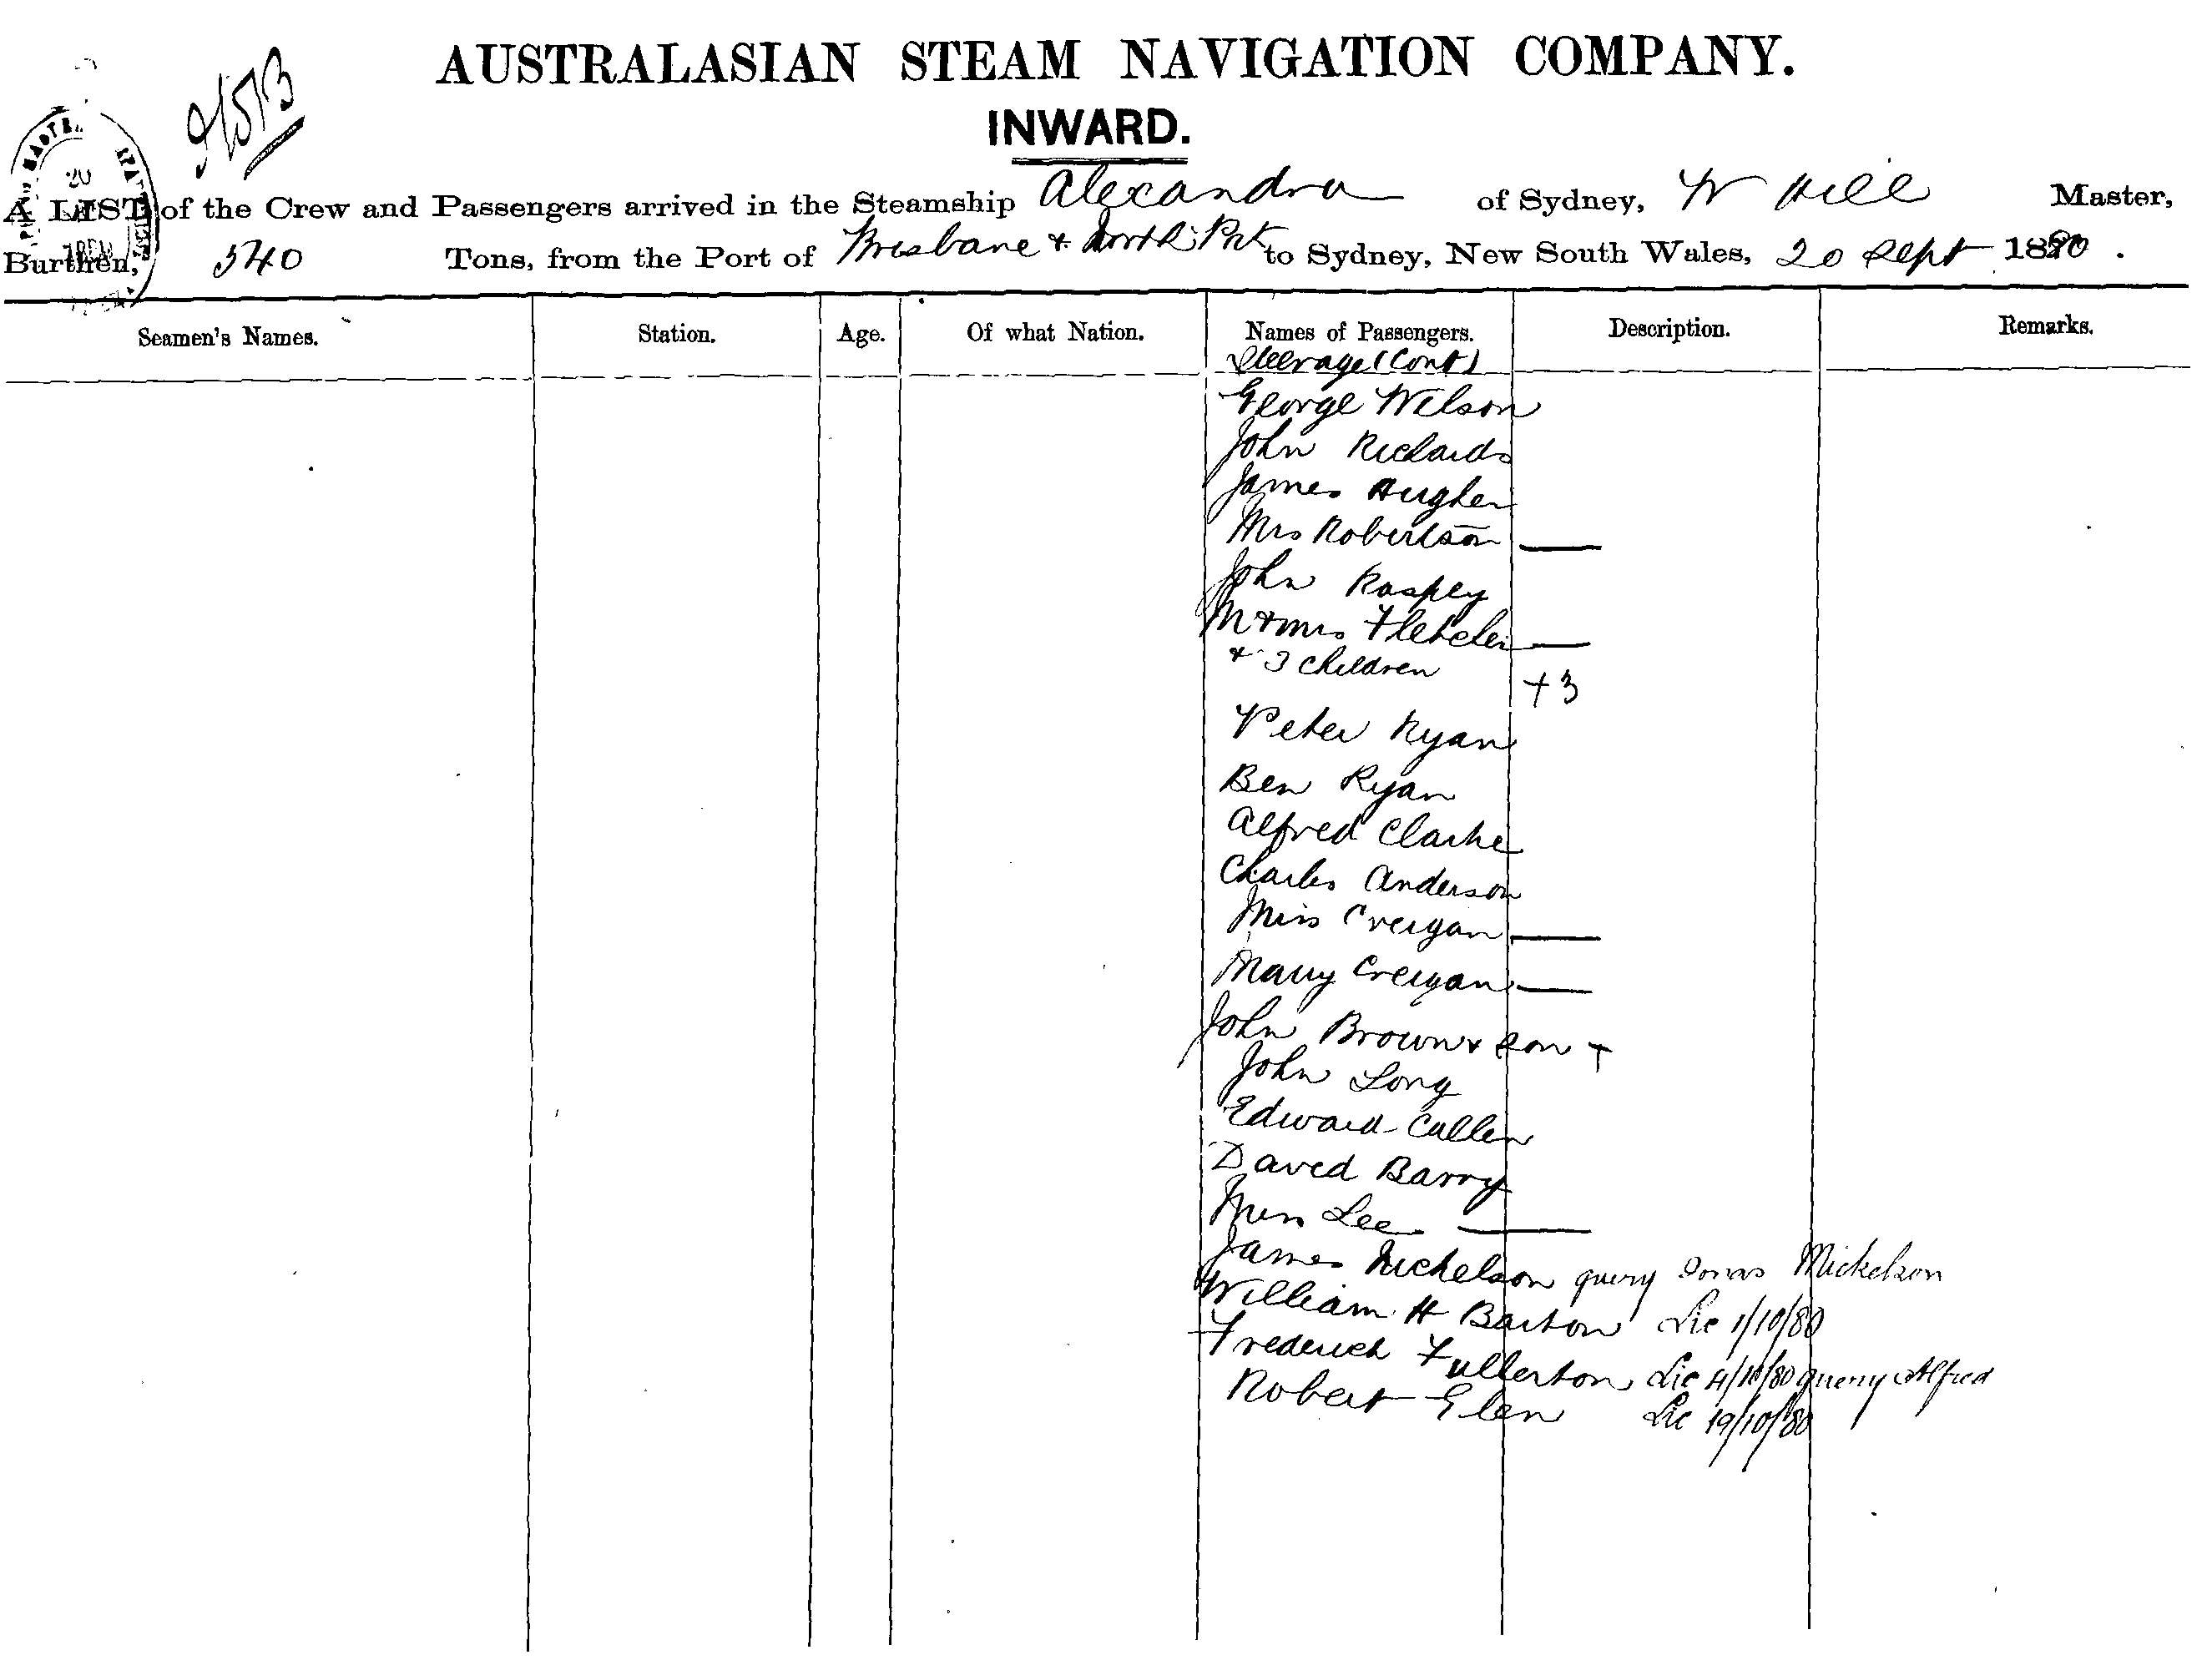 AUSTRALASIAN STEAM NAVIGATION COMPANY.
INWARD.
A LIST of the Crew and Passengers arrived in the Steamship Alexandra of Sydney, W Hill Master,
Burthen, 540 Tons, from the Port of Brisbane & North. Prt to Sydney, New South Wales, 20 Sept 1880.
Seamen's Names. Station. Age. Of what Nation. Names of Passengers. Description. Remarks.
Steerage (Cont)
George Wilson
John Richards
James Hughes
Mrs Robertson
John Raspey
Mr & Mrs Fletcher
& 3 children
+3
Peter Ryan
Ben Ryan
Alfred Clarke
Charles Anderson
Miss Creigan
Mary Creigan
John Brown & Son +
John Long
Edward Cullen
David Barry
Miss Lee
James Nichelson query Jonas Mickelson
William H Barton Lic 1/10/80
Frederich Fullerton Lic 4/10/80 query Alfred
Robert Glen Lic 19/10/80